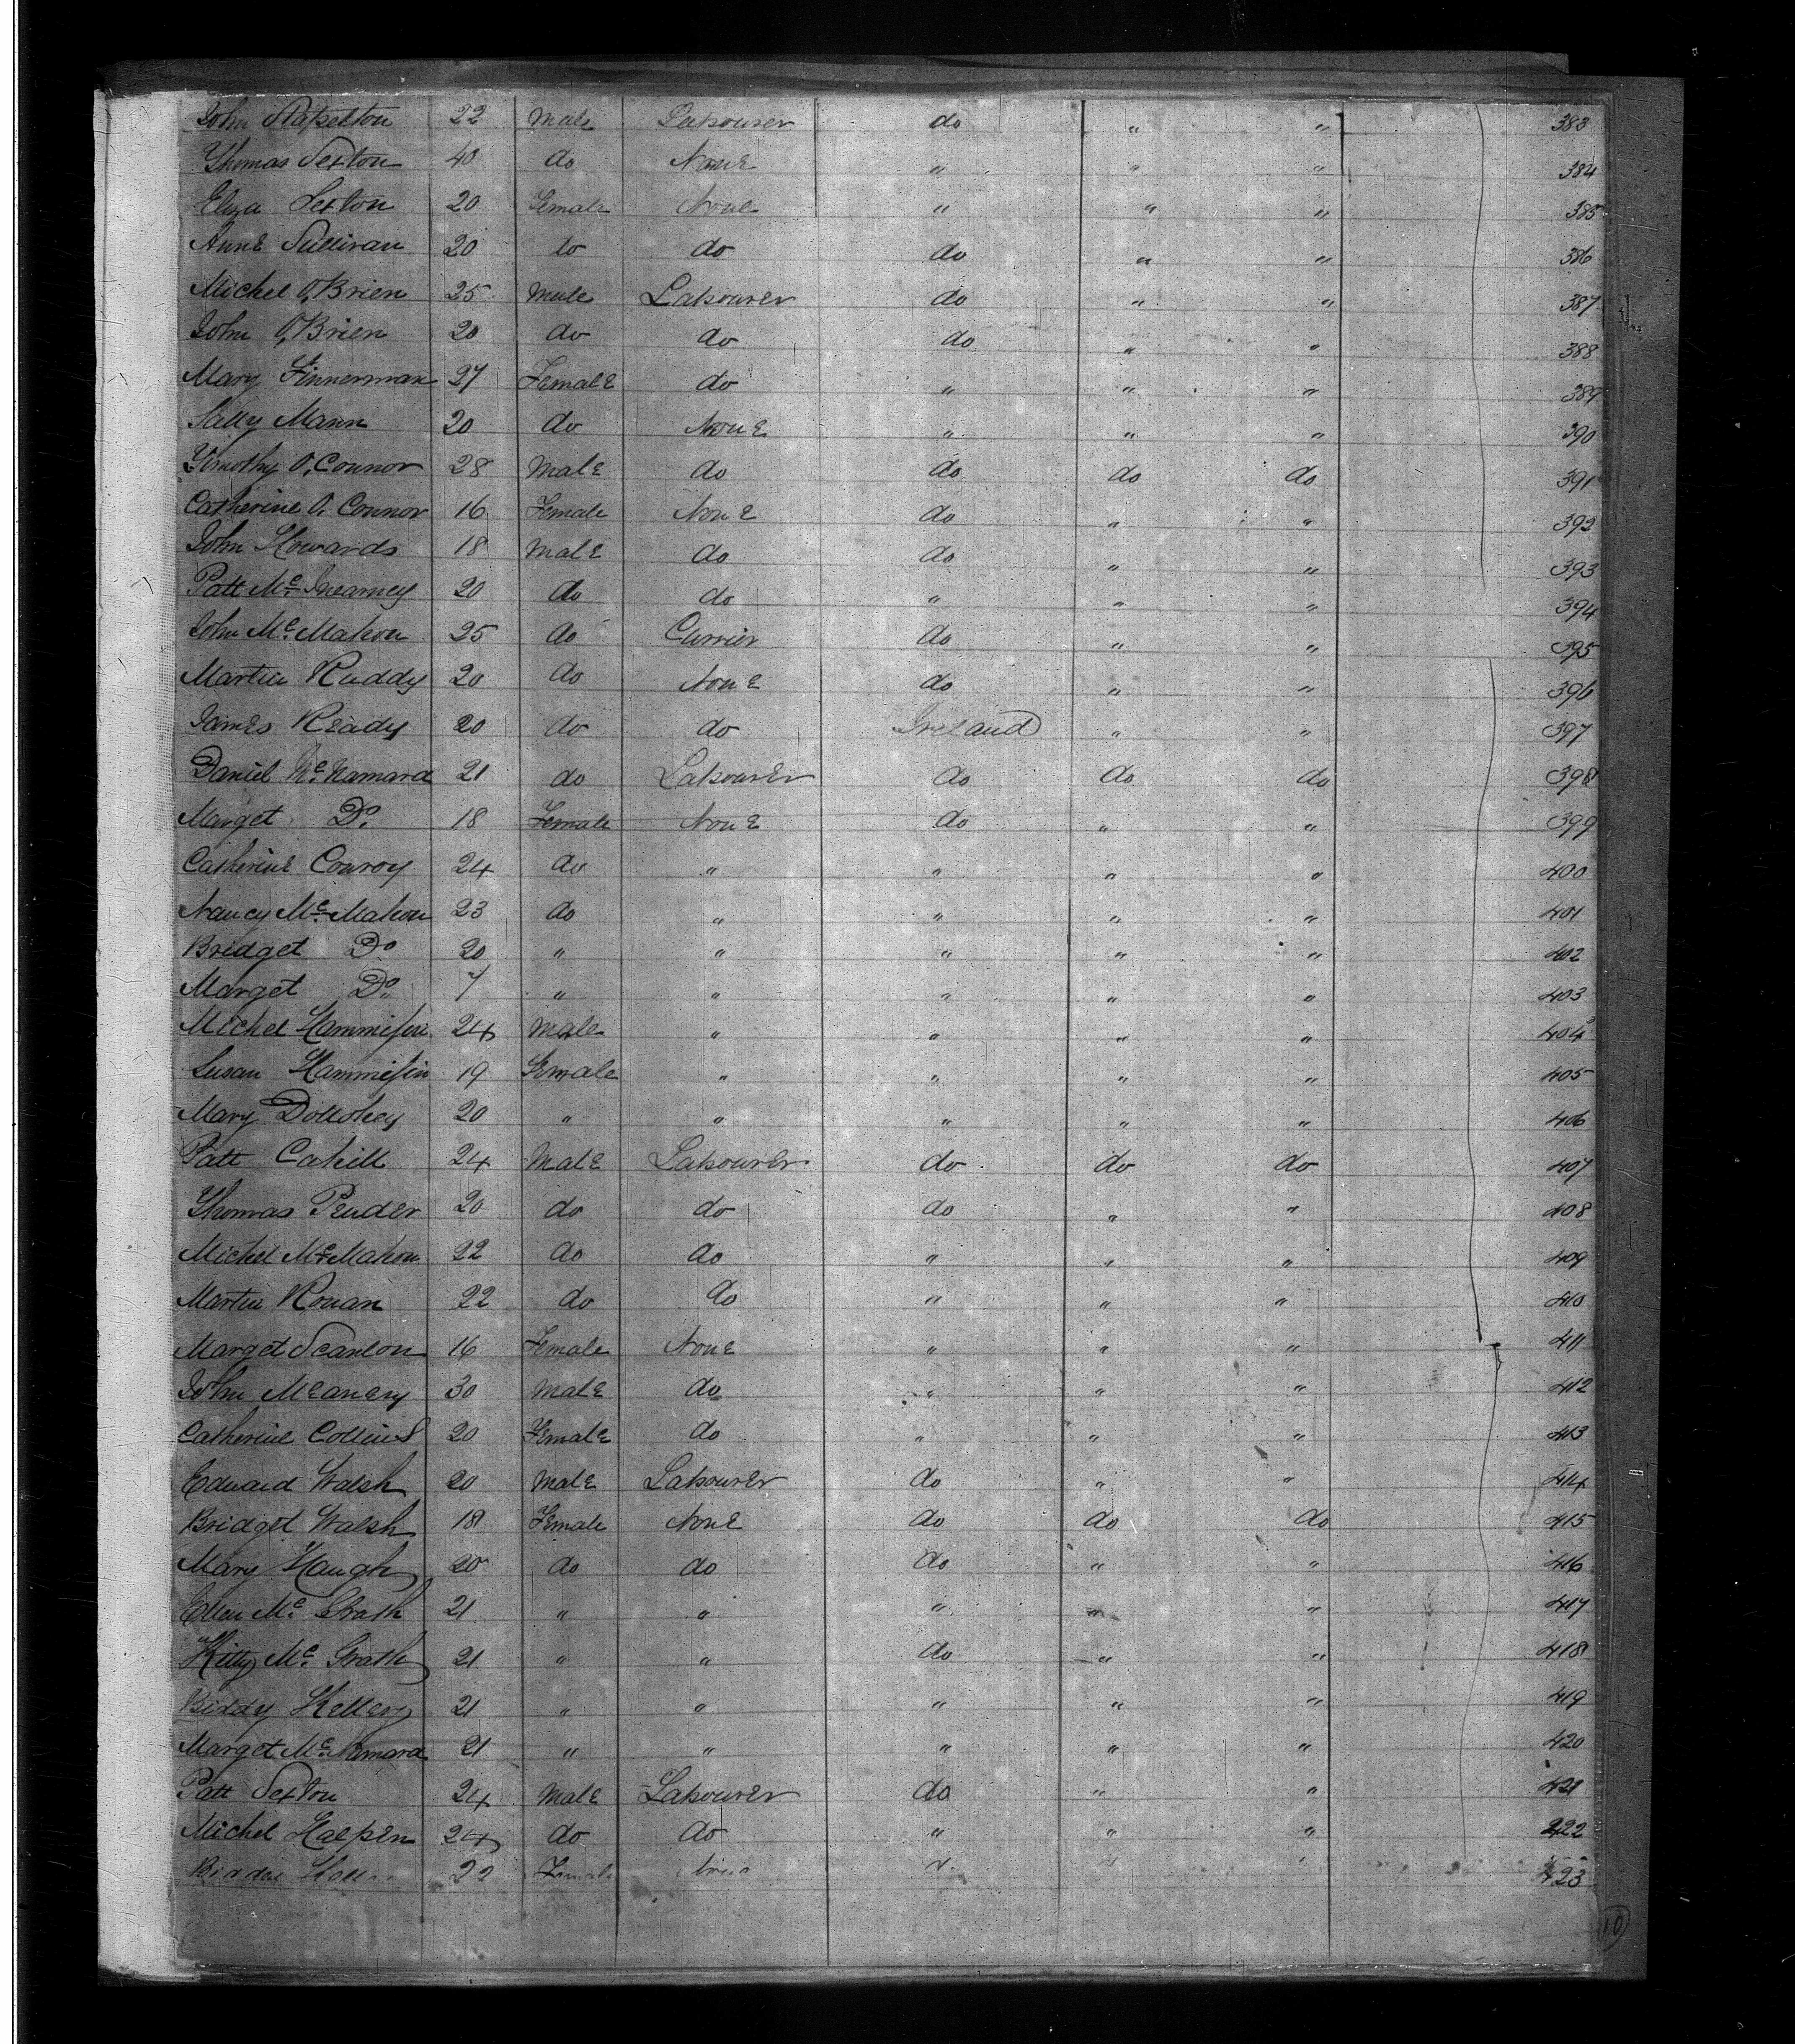 John Stapelton 22 Male Labourer do " " 383
Thomas Sexton 40 do None " " " 384
Eliza Sexton 20 Female None " " " 385
Anne Sullivan 20 do do do " " 386
Michel O,Brien 25 Male Labourer do " " 387
John O,Brien 20 do do do " " 388
Mary Finnerman 27 Female do " " " 389
Sally Mann 20 do None " " " 390
Timothy O,Connor 28 Male do do do do 391
Catherine O, Connor 16 Female None do " " 392
John Howards 18 Male do do " " 393
Patt Mc Inearney 20 do do " " " 394
John Mc Mahon 25 do Currier do " " 395
Martin Ruddy 20 do None do " " 396
James Ready 20 do do Ireland " " 397
Daniel Mc Namara 21 do Labourer do do do 398
Marget Do 18 Female None do " " 399
Catherine Conroy 24 do " " " " 400
Nancy Mc Mahon 23 do " " " " 401
Bridget Do 20 " " " " " 402
Marget Do 7 " " " " " 403
Michel 24 Male " " " " 404
Susan 19 Female " " " " 405
Mary Dollohey 20 " " " " " 406
Patt Cahill 24 Male Labourer do do do 407
Thomas Pender 20 do do do " " 408
Michel Mc Mahon 22 do do " " " 409
Martin Ronan 22 do do " " " 410
Marget Scanlon 16 Female None " " " 411
John Meaney 30 Male do " " " 412
Catherine Collins 20 Female do " " " 413
Edward Walsh 20 Male Labourer do " " 414
Bridget Walsh 18 Female None do do do 415
Mary Haugh 20 do do do " " 416
Ellen Mc Grath 21 " " " " " 417
Kitty Mc Grath 21 " " do " " 418
Biddy Kelley 21 " " " " " 419
Marget Mc Namara 21 " " " " " 420
Patt Sexton 24 Male Labourer do " " 421
Michel Halpen 24 do do " " " 422
22 Female 423
10